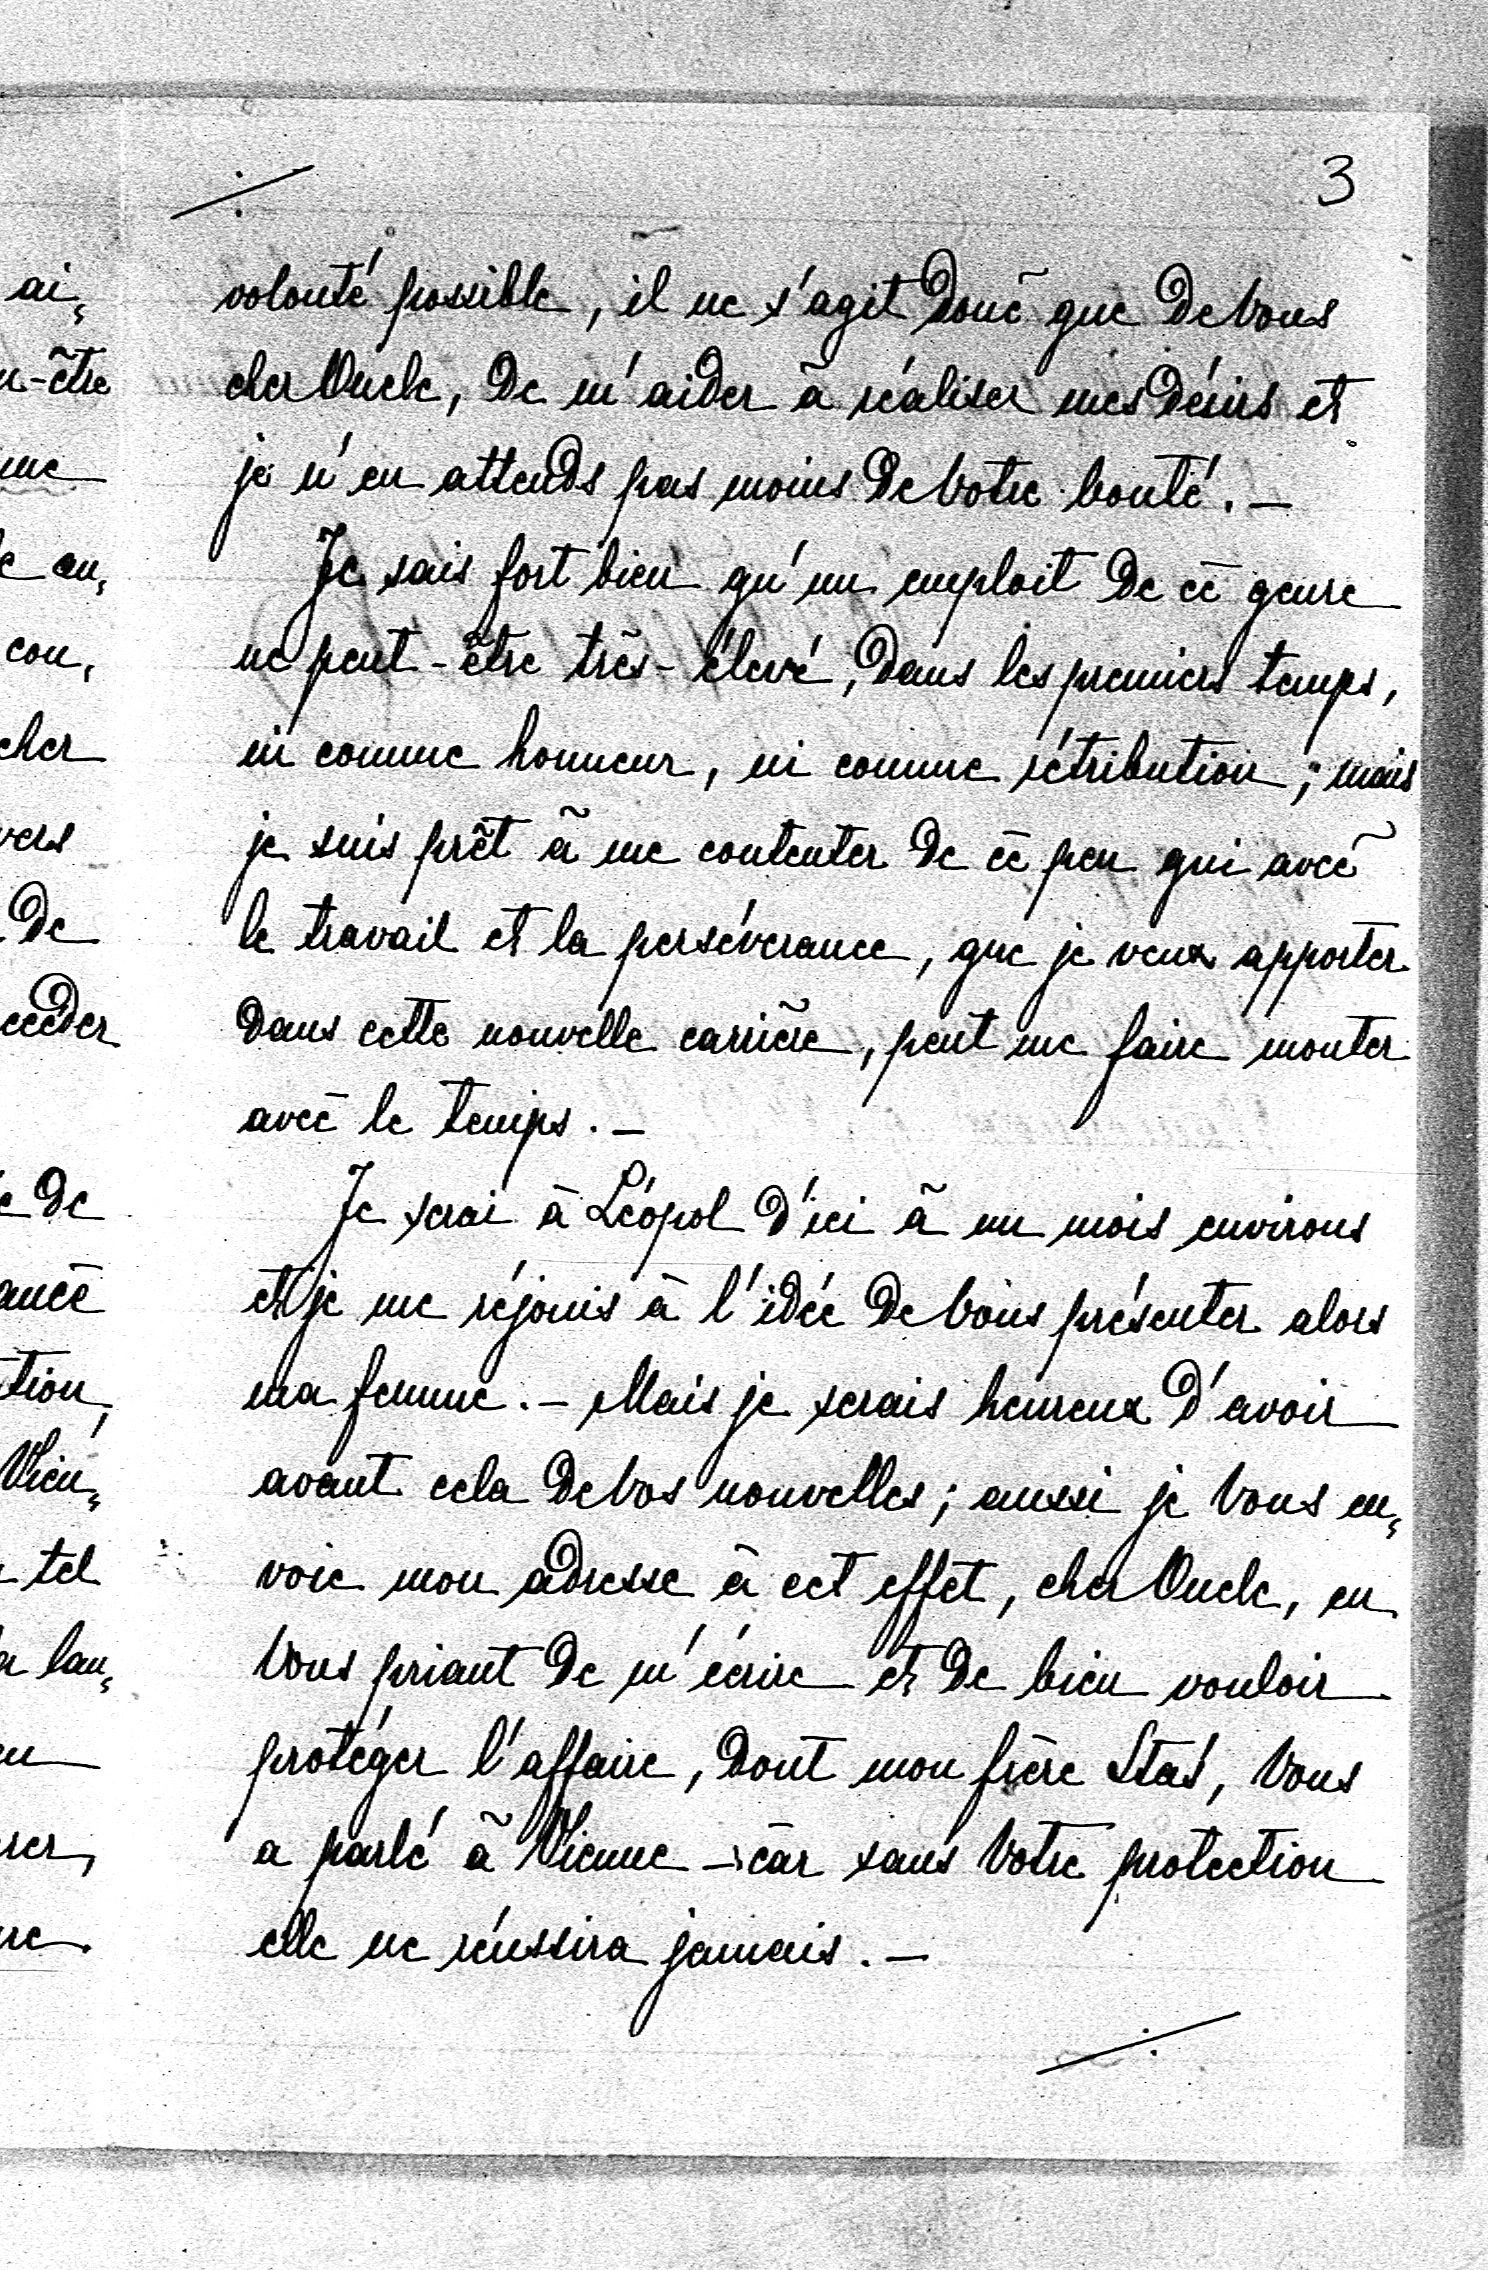 3
ai„
n-être
me
e en„
con,
cher
vers
de
ccéder
e de
ance
tion,
Vien„
tel
a lan„
rer,
volonté possible, il ne s'agit donc que de Vous
cher Oncle, de m'aider à réaliser mes désirs et
je n'en attends pas moins de Votre bonté. —
Je sais fort bien qu'un emploit de ce genre
ne peut-être très-élevé, dans les premiers temps,
ni comme honneur, ni comme rétribution; mais
je suis prêt à me contenter de ce peu qui avec
le travail et la persévérance, que je veux apporter
dans cette nouvelle carrière, peut me faire monter
avec le temps. —
Je serai à Léopol d'ici à un mois environs
et je me réjouis à l'idée de Vous présenter alors
ma femme. — Mais je serais heureux d'avoir
avant cela de Vos nouvelles; aussi je Vous en„
voie mon adresse à cet effet, cher Oncle, en
Vous priant de m'écrire et de bien vouloir
protéger l'affaire, dont mon frère Staś, Vous
a parlé à Vienne — car sans Votre protection
elle ne réussira jamais. —